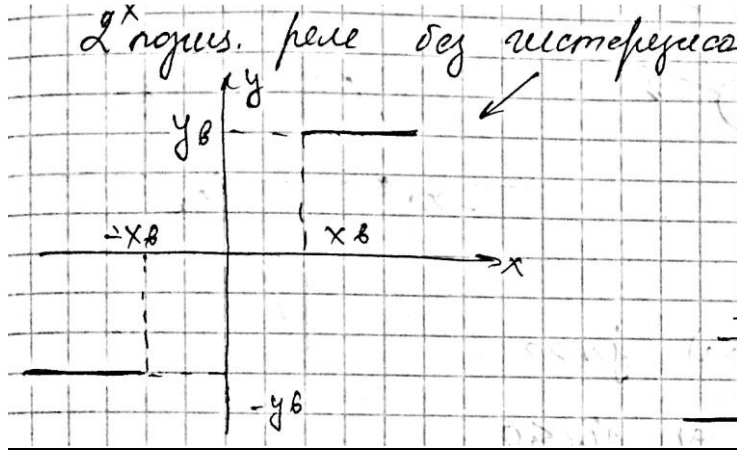 2х позиц. реле без гистерезиса
y
yв
-xв xв
x
-yв